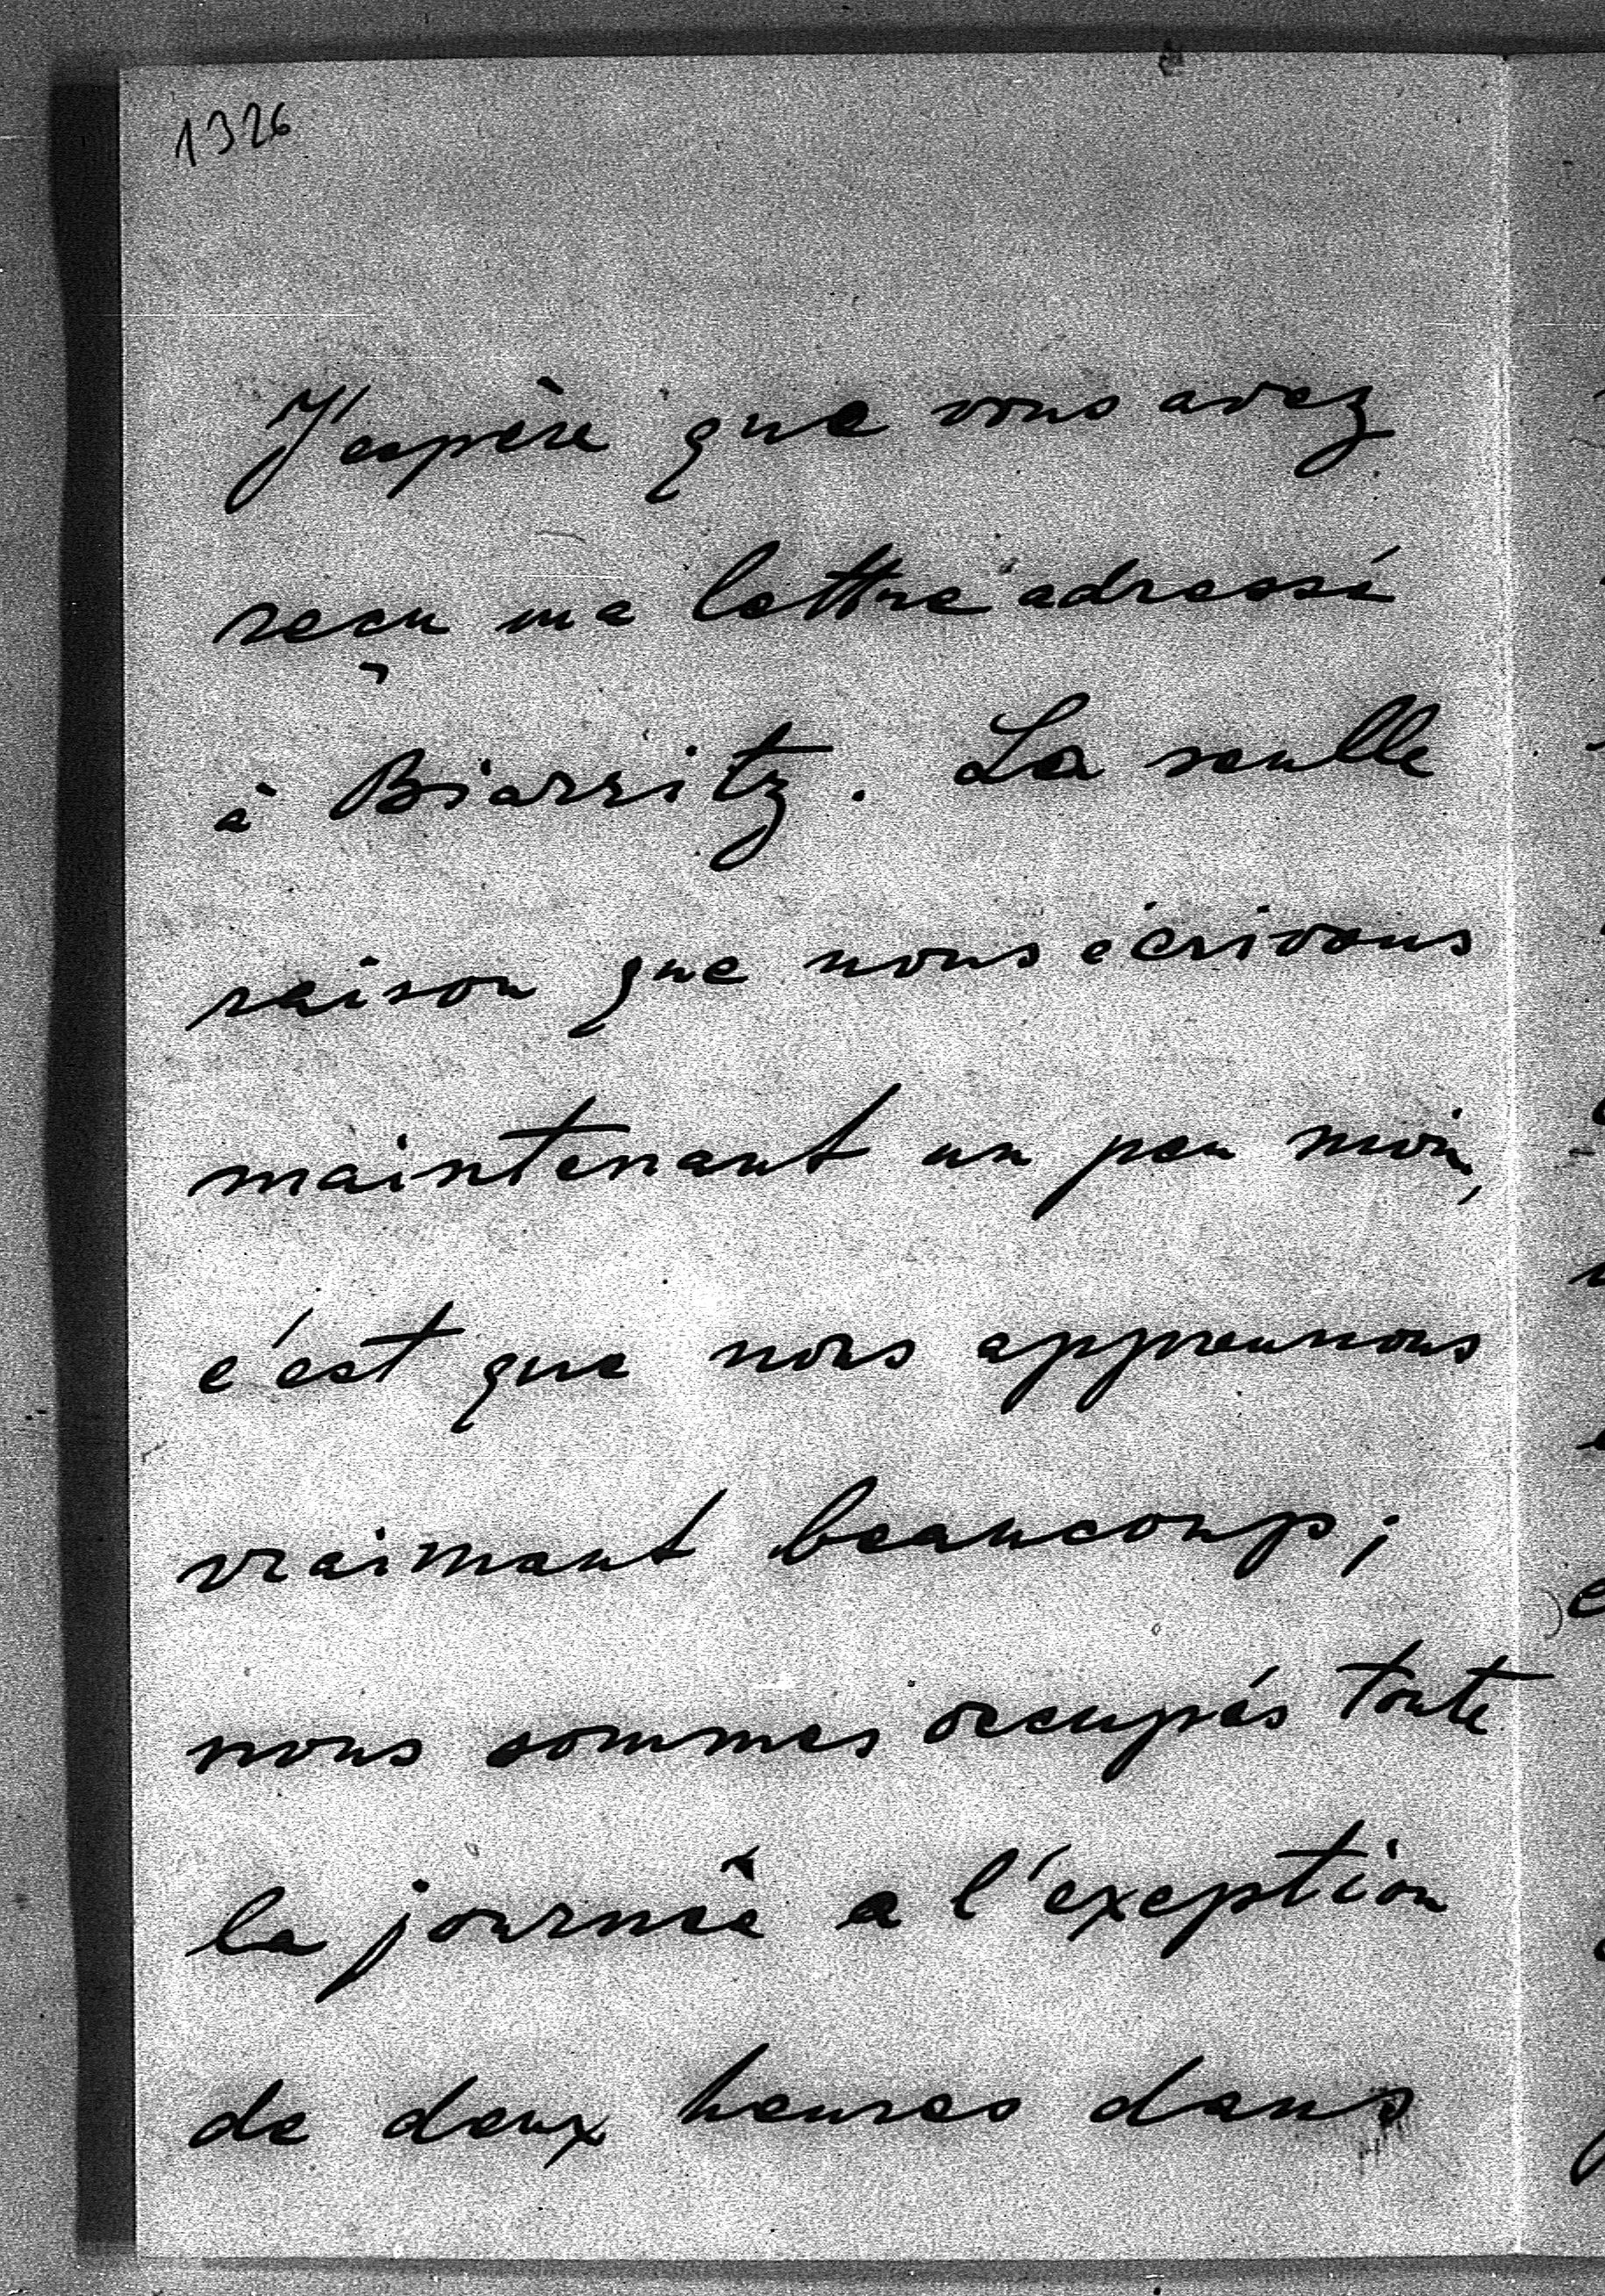 1326
J'espère que vous avez
reçu ma lettre adressé
à Biarritz. La seulle
raison que nous écrivons
maintenant un peu moin,
c'est que nous apprennons
vraimant beaucoup;
nous sommes occupés toute
la journée a l'exeption
de deux heures dans